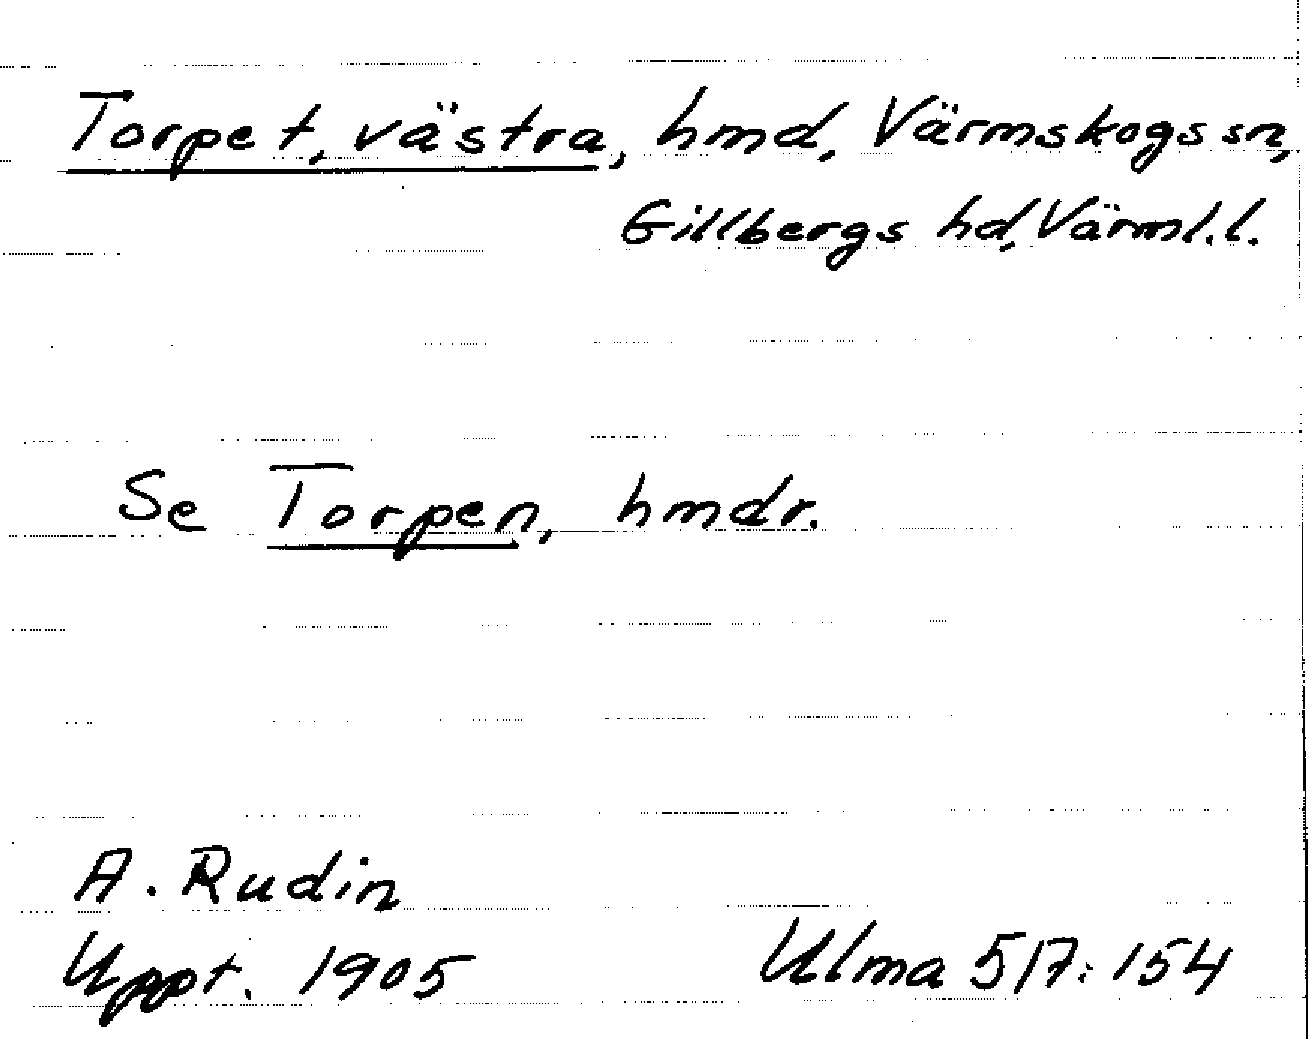 Torpet, västra, hmd, Värmskogs sn,
Gillbergs hd, Värml.l.
Se Torpen, hmdr.
A. Rudin
Uppt. 1905
Ulma 517:154